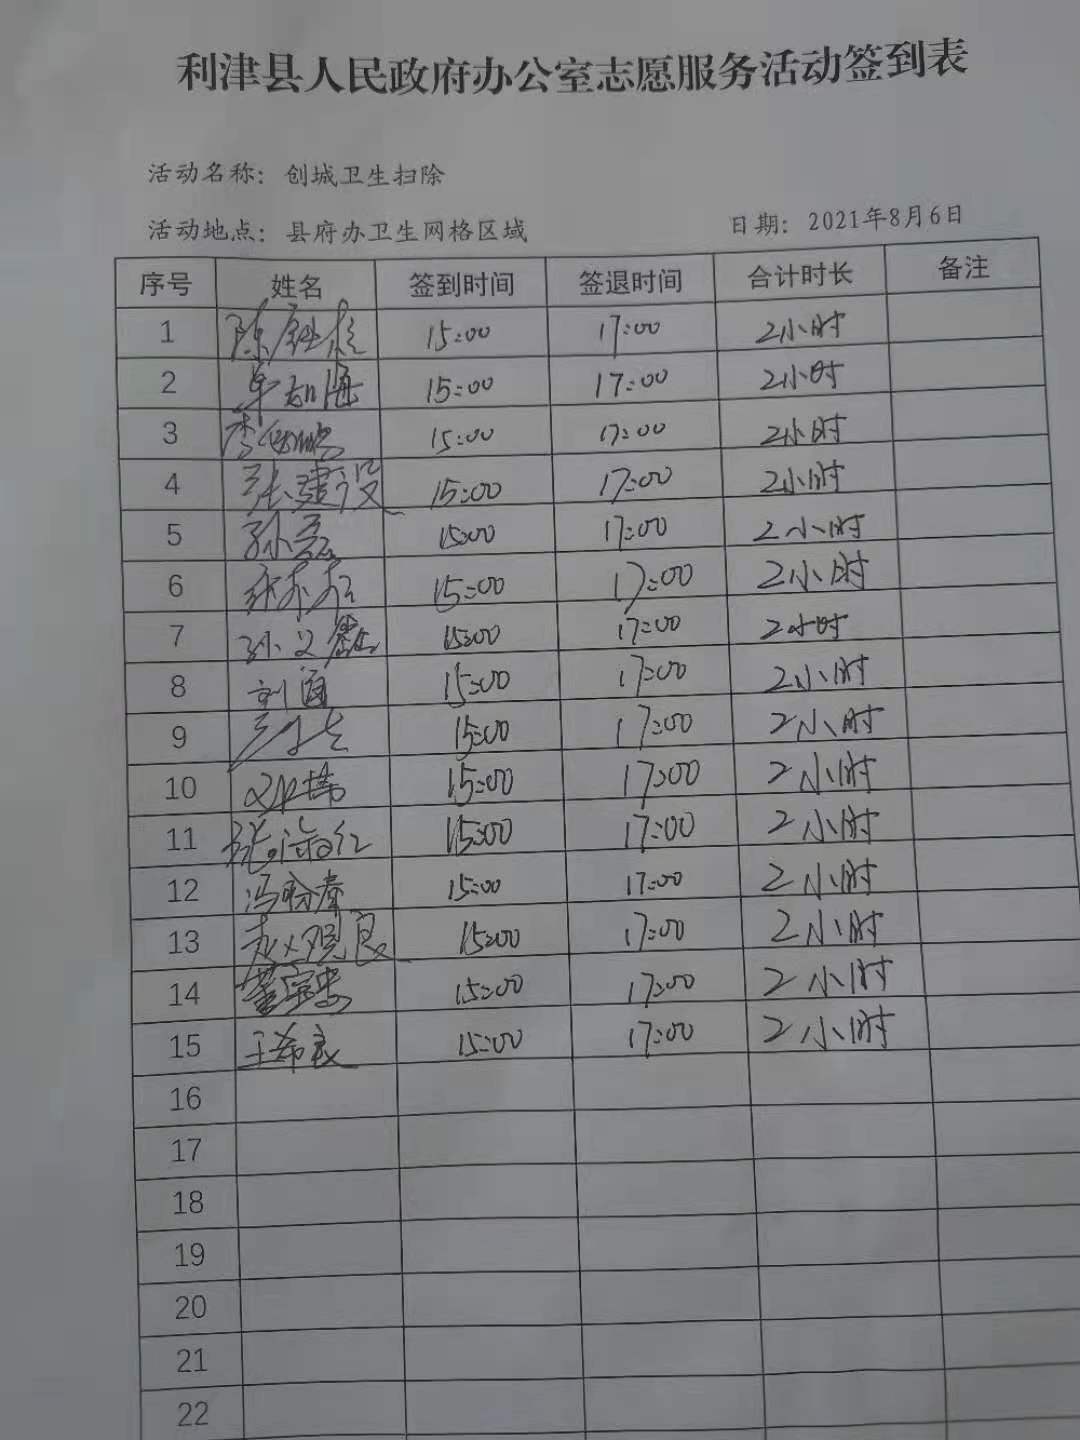 利津县人民政府办公室志愿服务活动签到表
活动名称：创城卫生扫除
活动地点：县府办卫生网格区域 日期：2021年8月6日
序号 姓名 签到时间 签退时间 合计时长 备注
1 15:00 17:00 2小时
2 15:00 17:00 2小时
3 15:00 17:00 2小时
4 张建设 15:00 17:00 2小时
5 孙磊 15:00 17:00 2小时
6 15:00 17:00 2小时
7 15:00 17:00 2小时
8 刘通 15:00 17:00 2小时
9 15:00 17:00 2小时
10 15:00 17:00 2小时
11 15:00 17:00 2小时
12 15:00 17:00 2小时
13 赵观良 15:00 17:00 2小时
14 董宝忠 15:00 17:00 2小时
15 王希良 15:00 17:00 2小时
16
17
18
19
20
21
22